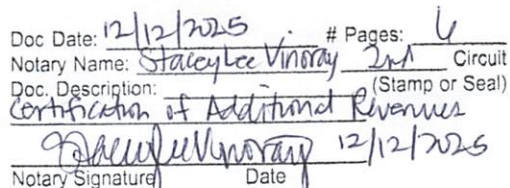 Doc Date: 12/12/2025 # Pages: 6
Notary Name: Stacey Lee Vinoray 2nd Circuit
Doc. Description: (Stamp or Seal)
Certification of Additional Revenues
12/12/2025
Notary Signature Date